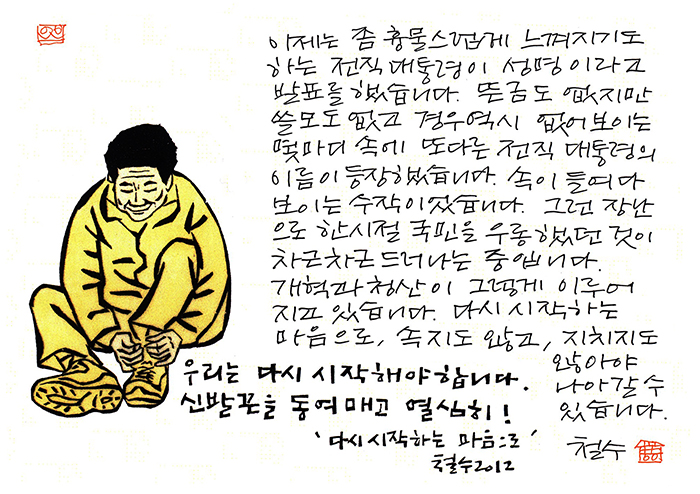 이제는 좀 흉물스럽게 느껴지기도
하는 전직 대통령이 성명이라고
발표를 했습니다. 뜬금도 없지만
쓸모도 없고 경우역시 없어보이는
몇마디 속에 또다른 전직 대통령의
이름이 등장했습니다. 속이 들여다
보이는 수작이었습니다. 그런 장난
으로 한시절 국민을 우롱했던 것이
차근차근 드러나는 중입니다.
개혁과 청산이 그렇게 이루어
지고 있습니다. 다시 시작하는
마음으로, 속지도 않고, 지치지도
않아야
나아갈 수
있습니다.
철수
우리는 다시 시작해야합니다.
신발끈을 동여매고 열심히!
'다시 시작하는 마음으로'
철수2012